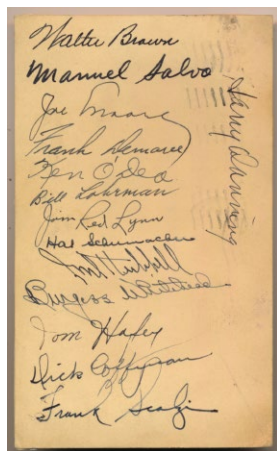 Walter Brown
Manuel Salvo
Joe Moore
Frank Demaree
Ken O'Dea
Bill Lohrman
Jim Red Lynn
Hal Schumacher
Burgess Whitehead
Tom Hafey
Dick Coffman
Frank Scalzi
Harry Danning